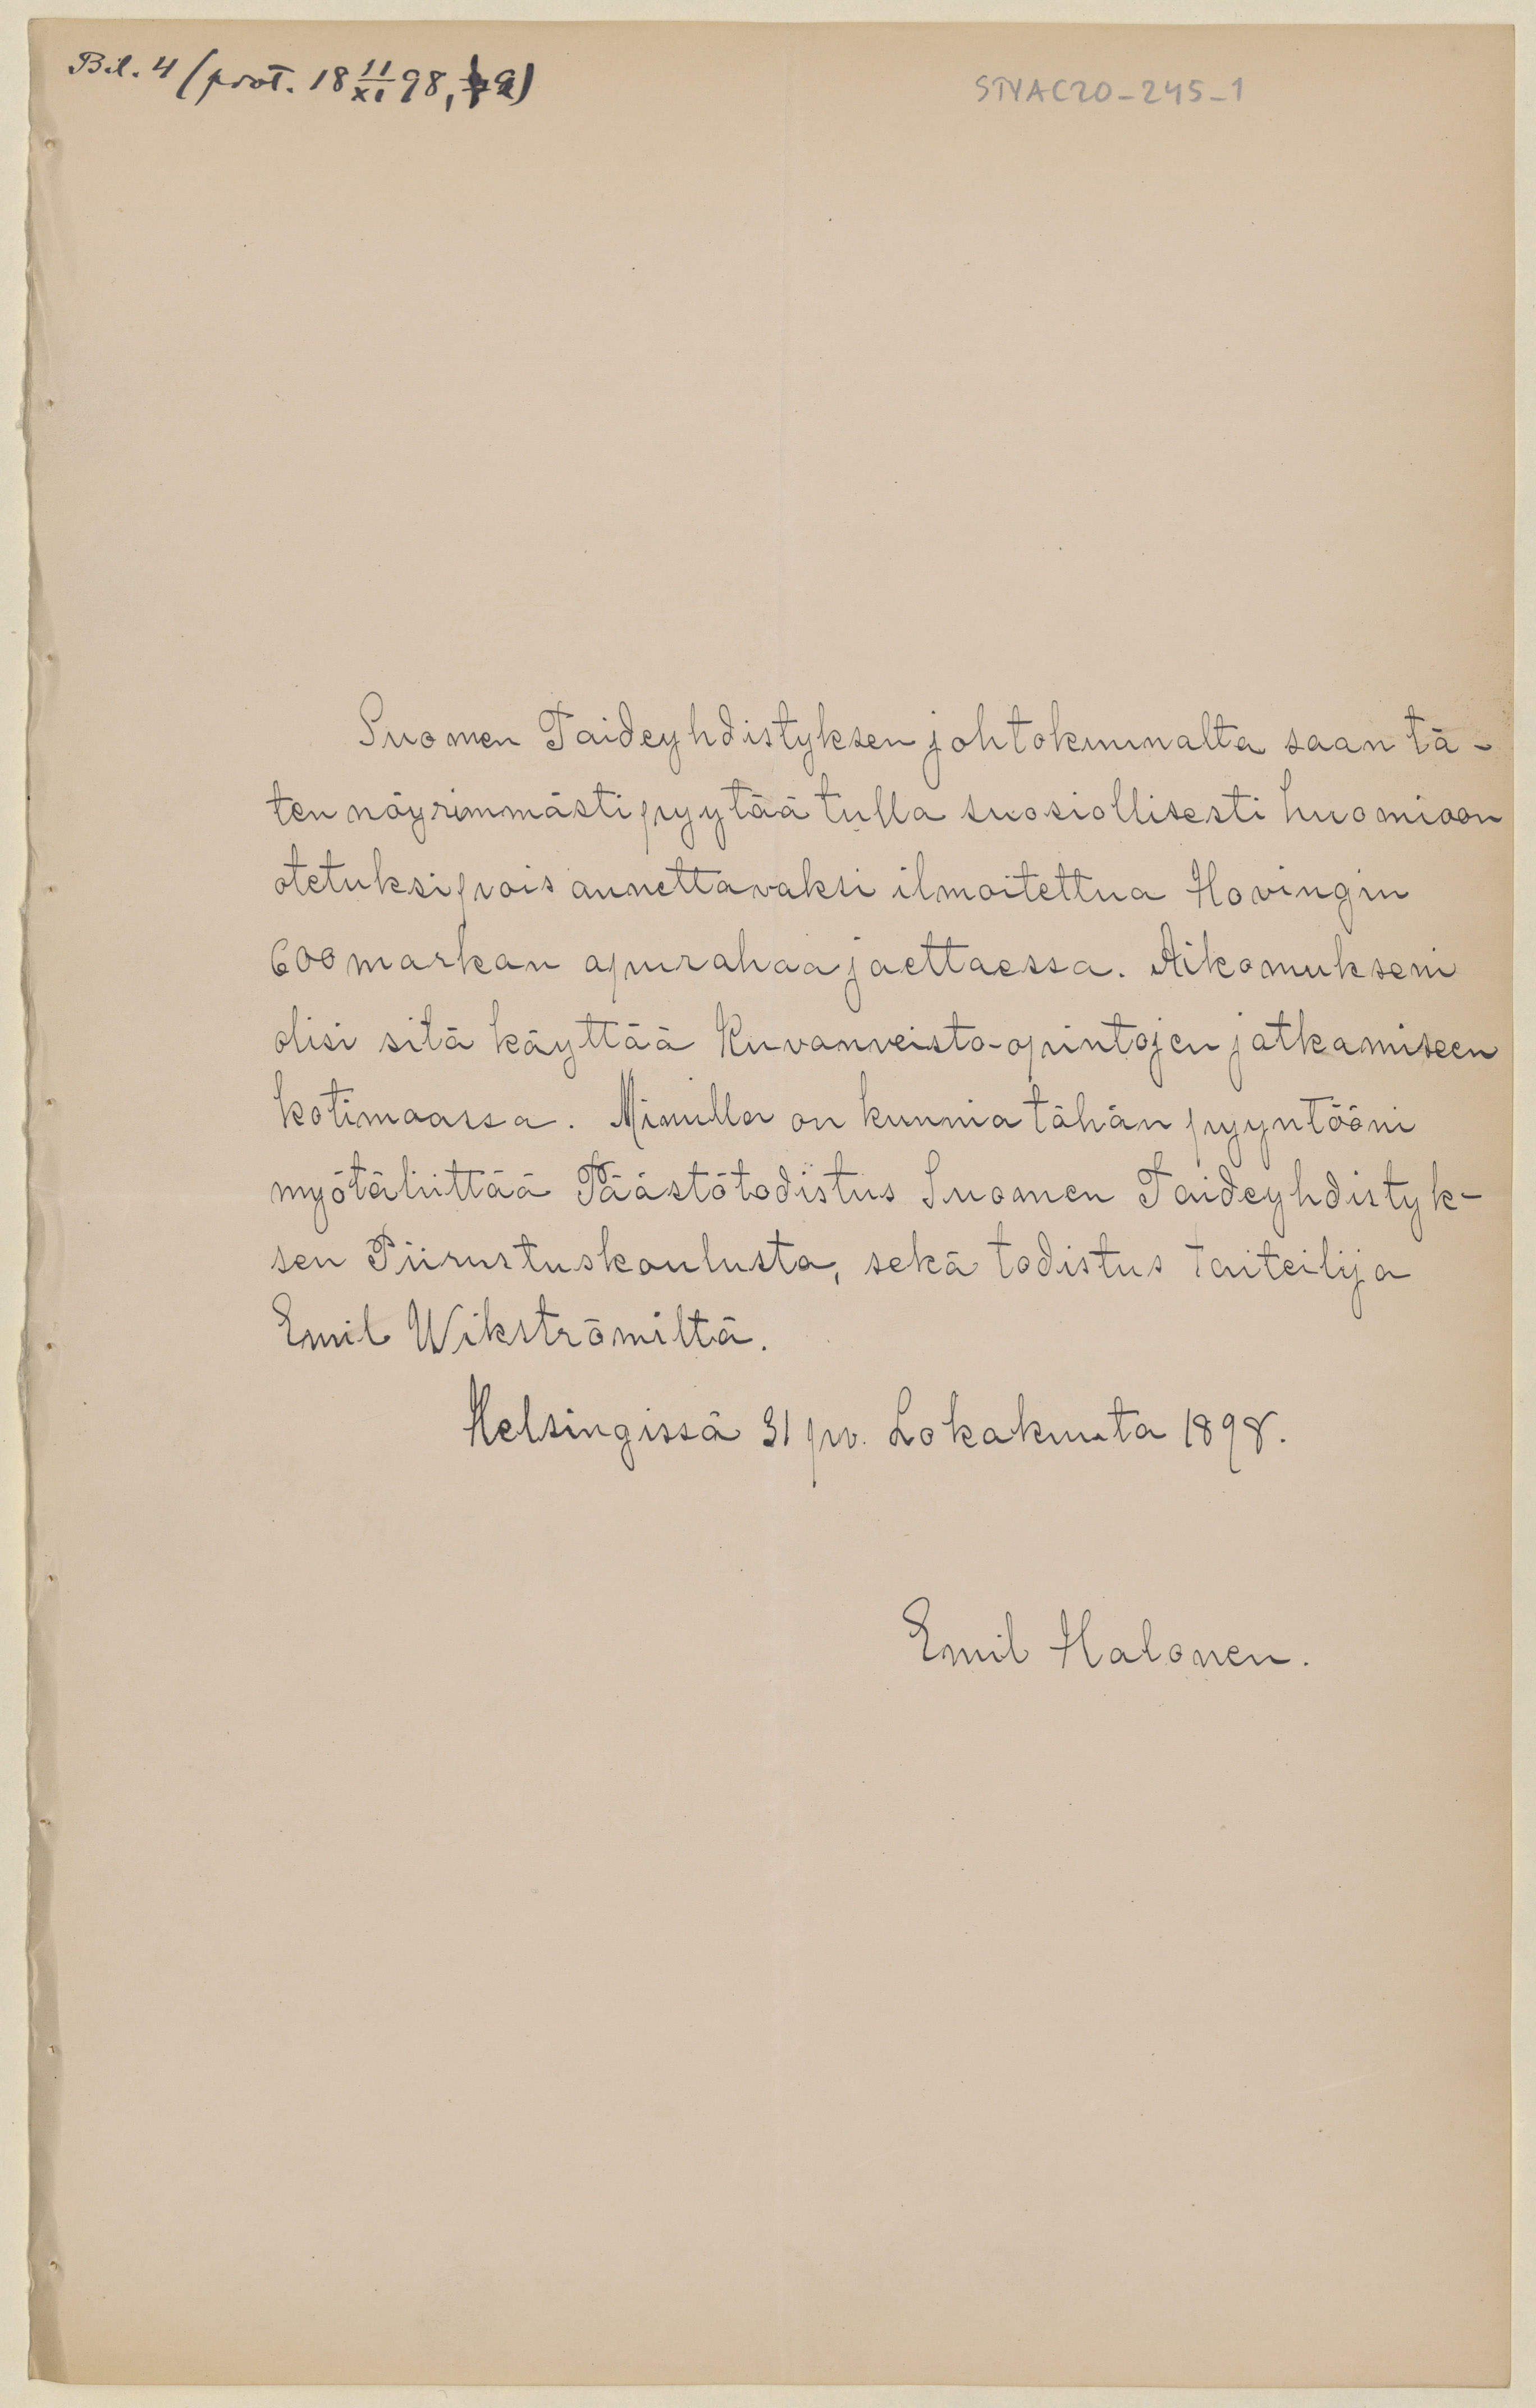 Bil. 4 (prot. 18 11/XI 98, § 9)
STYAC20-245-1
Suomen Taideyhdistyksen johtokunnalta saan tä-
ten nöyrimmästi pyytää tulla suosiollisesti huomioon
otetuksi pois annettavaksi ilmoitettua Hovingin
600 markan apurahaa jaettaessa. Aikomukseni
olisi sitä käyttää Kuvanveisto-opintojen jatkamiseen
kotimaassa. Minulla on kunnia tähän pyyntööni
myötäliittää Päästötodistus Suomen Taideyhdistyk-
sen Piirustuskoulusta, sekä todistus taiteilija
Emil Wikströmiltä.
Helsingissä 31 pv. Lokakuuta 1898.
Emil Halonen.